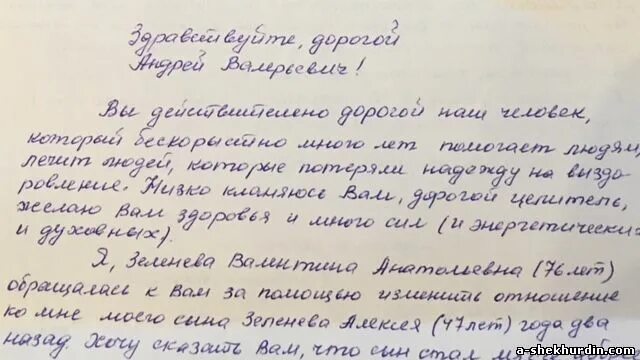 Здравствуйте, дорогой
Андрей Валерьевич!
Вы действительно дорогой наш человек,
который бескорыстно много лет помогает людям,
лечит людей, которые потеряли надежду на выздо-
ровление. Низко кланяюсь Вам, дорогой целитель,
желаю Вам здоровья и много сил (и энергетических
и духовных).
Я, Зеленева Валентина Анатольевна (76 лет)
обращалась к Вам за помощью изменить отношение
ко мне моего сына Зеленева Алексея (47 лет) года два
назад. Хочу сказать Вам, что сын стал
a-shekhurdin.com